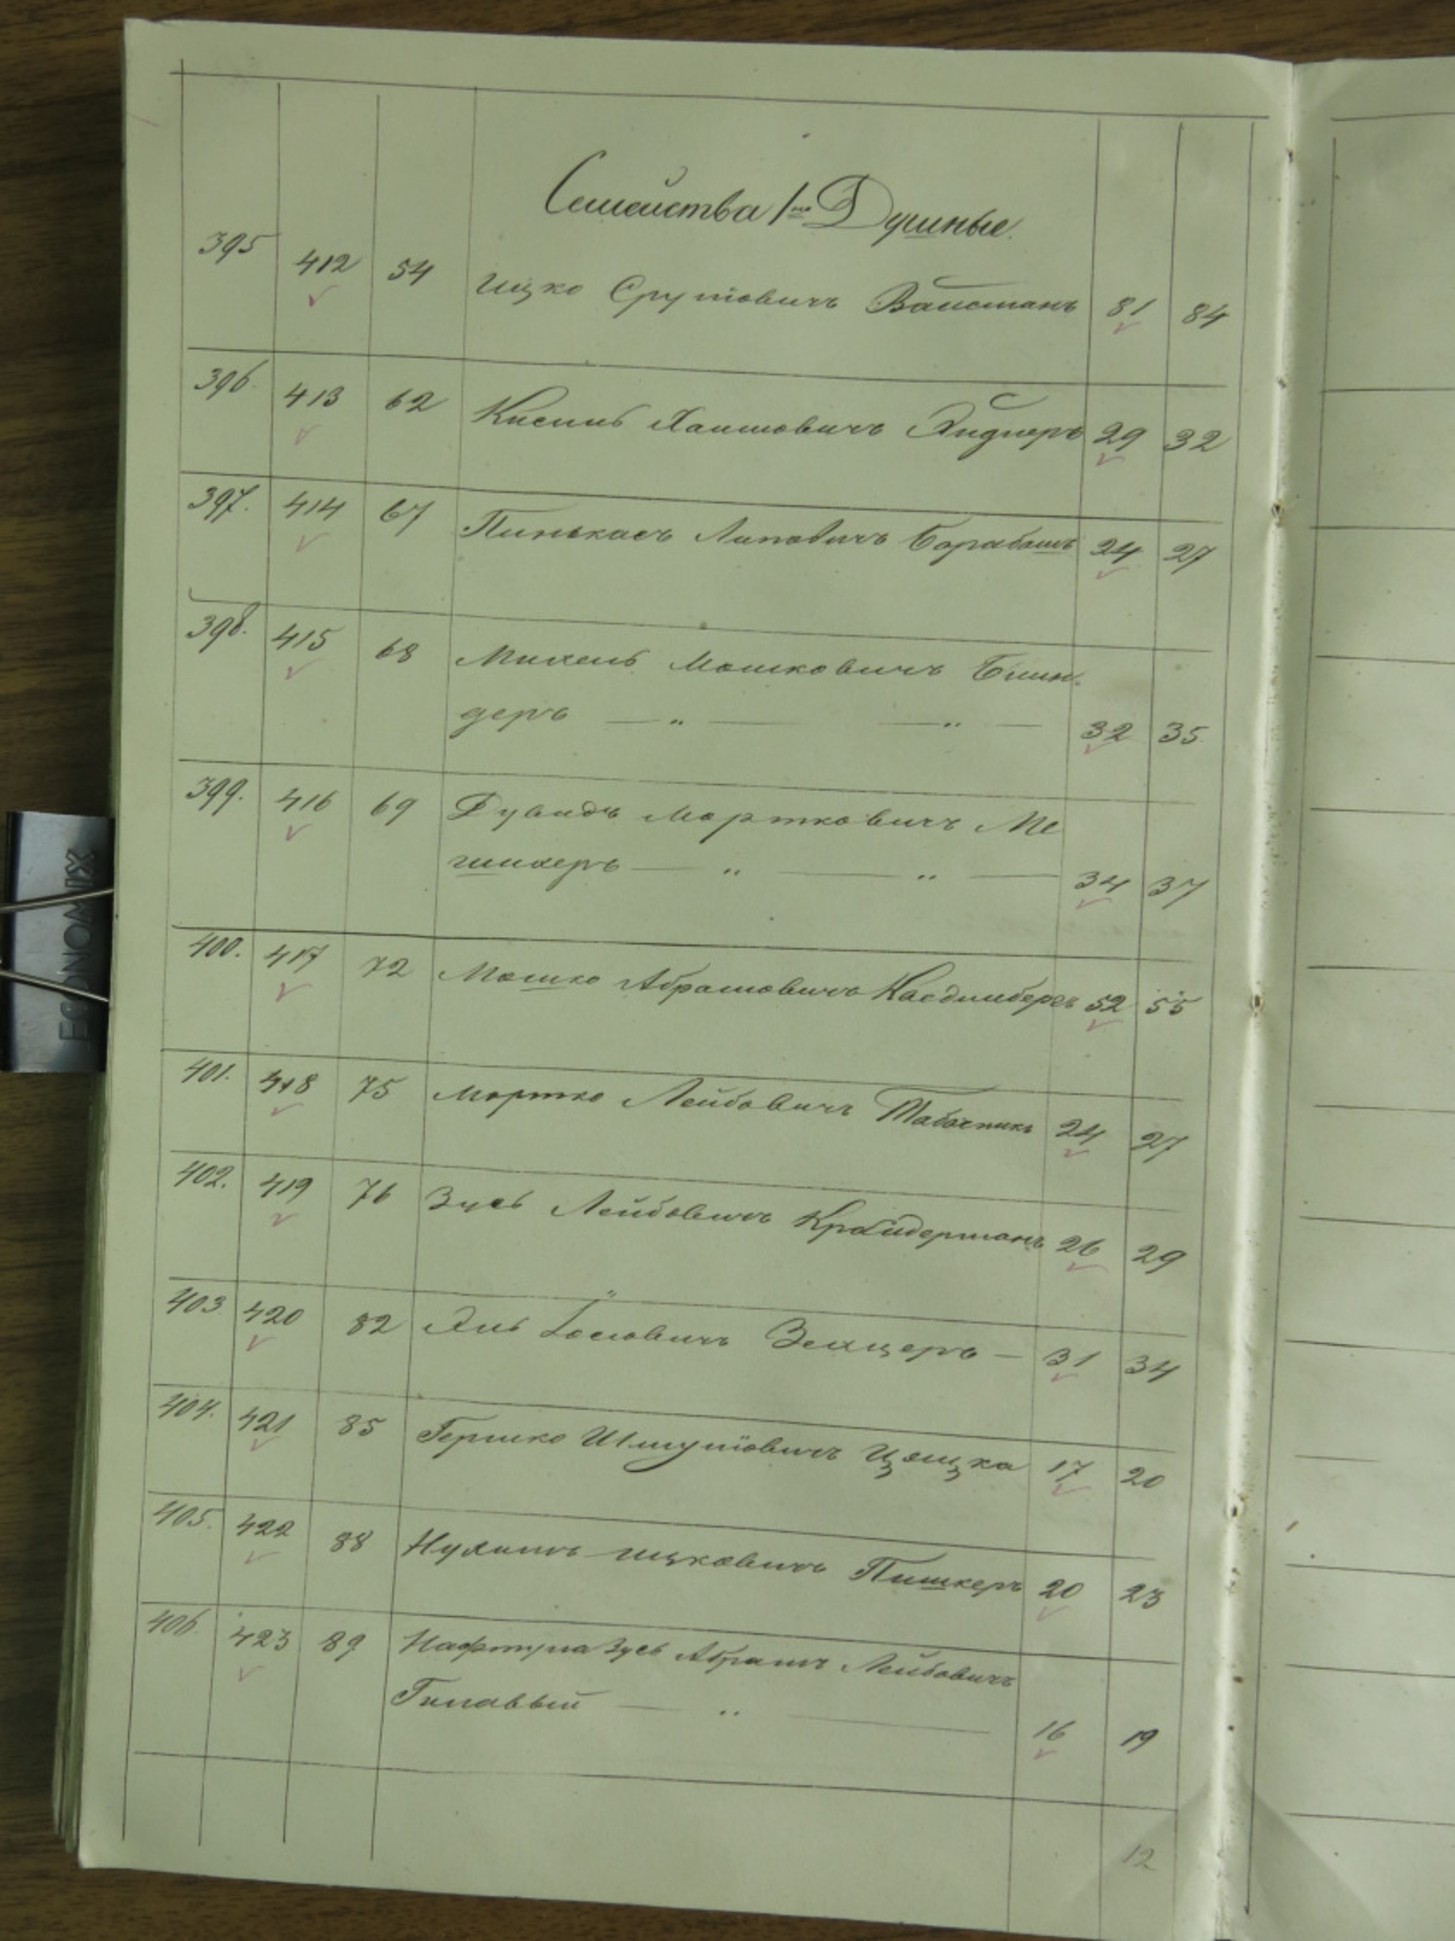 Семейства 1но Душные.
395 412 54 Ицко Срулювичъ Вайсманъ 81 84
396. 413 62 Кисиль Хаимовичъ Янднеръ 29 32
397. 414 67 Пинькасъ Липовичъ Барабашъ 24 27
398. 415 68 Михель Мошковичъ Блин-
деръ — „ — — „ — 32 35
399. 416 69 Дувидъ Мортковичъ Ме
шихеръ — „ — „ — 34 37
400. 417 72 Мошко Абрамовичъ 52 55
401. 418 75 Мортко Лейбовичъ Табачникъ 24 27
402. 419 76 Зусь Лейбовичъ Крайдерманъ 26 29
403 420 82 Іосіовичъ Зельцеръ — 31 34
404. 421 85 Гершко Шмулїовичъ Цацка 17 20
405. 422 88 Нухимъ Ицковичъ Пишкеръ 20 23
406. 423 89 Нафтула Зусь Абрамъ Лейбовичъ
— „ — 16 19
12
ECONOMIX